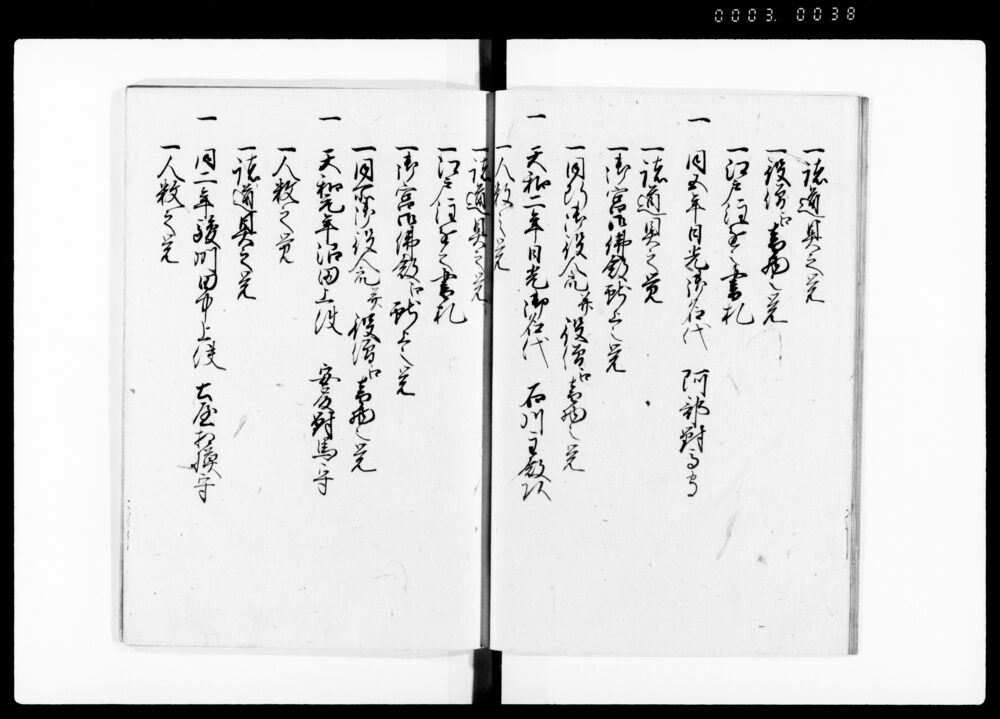 0003. 0038
一諸道具之覚
一役僧江書物之覚
一江戸江注進之書札
一 同五年日光御名代 阿部對馬守
一諸道具之覚
一御宮御佛殿江献上之覚
一同所御役人并役僧江書物之覚
一 天和二年日光御名代 石川主殿頭
一人数之覚
一諸道具之覚
一江戸江注進之書札
一御宮御佛殿江献上之覚
一同所御役人并役僧江書物之覚
一 天和元年沼田上使 安藤對馬守
一人数之覚
一諸道具之覚
一 同二年駿州田中上使 土屋相模守
一人数之覚